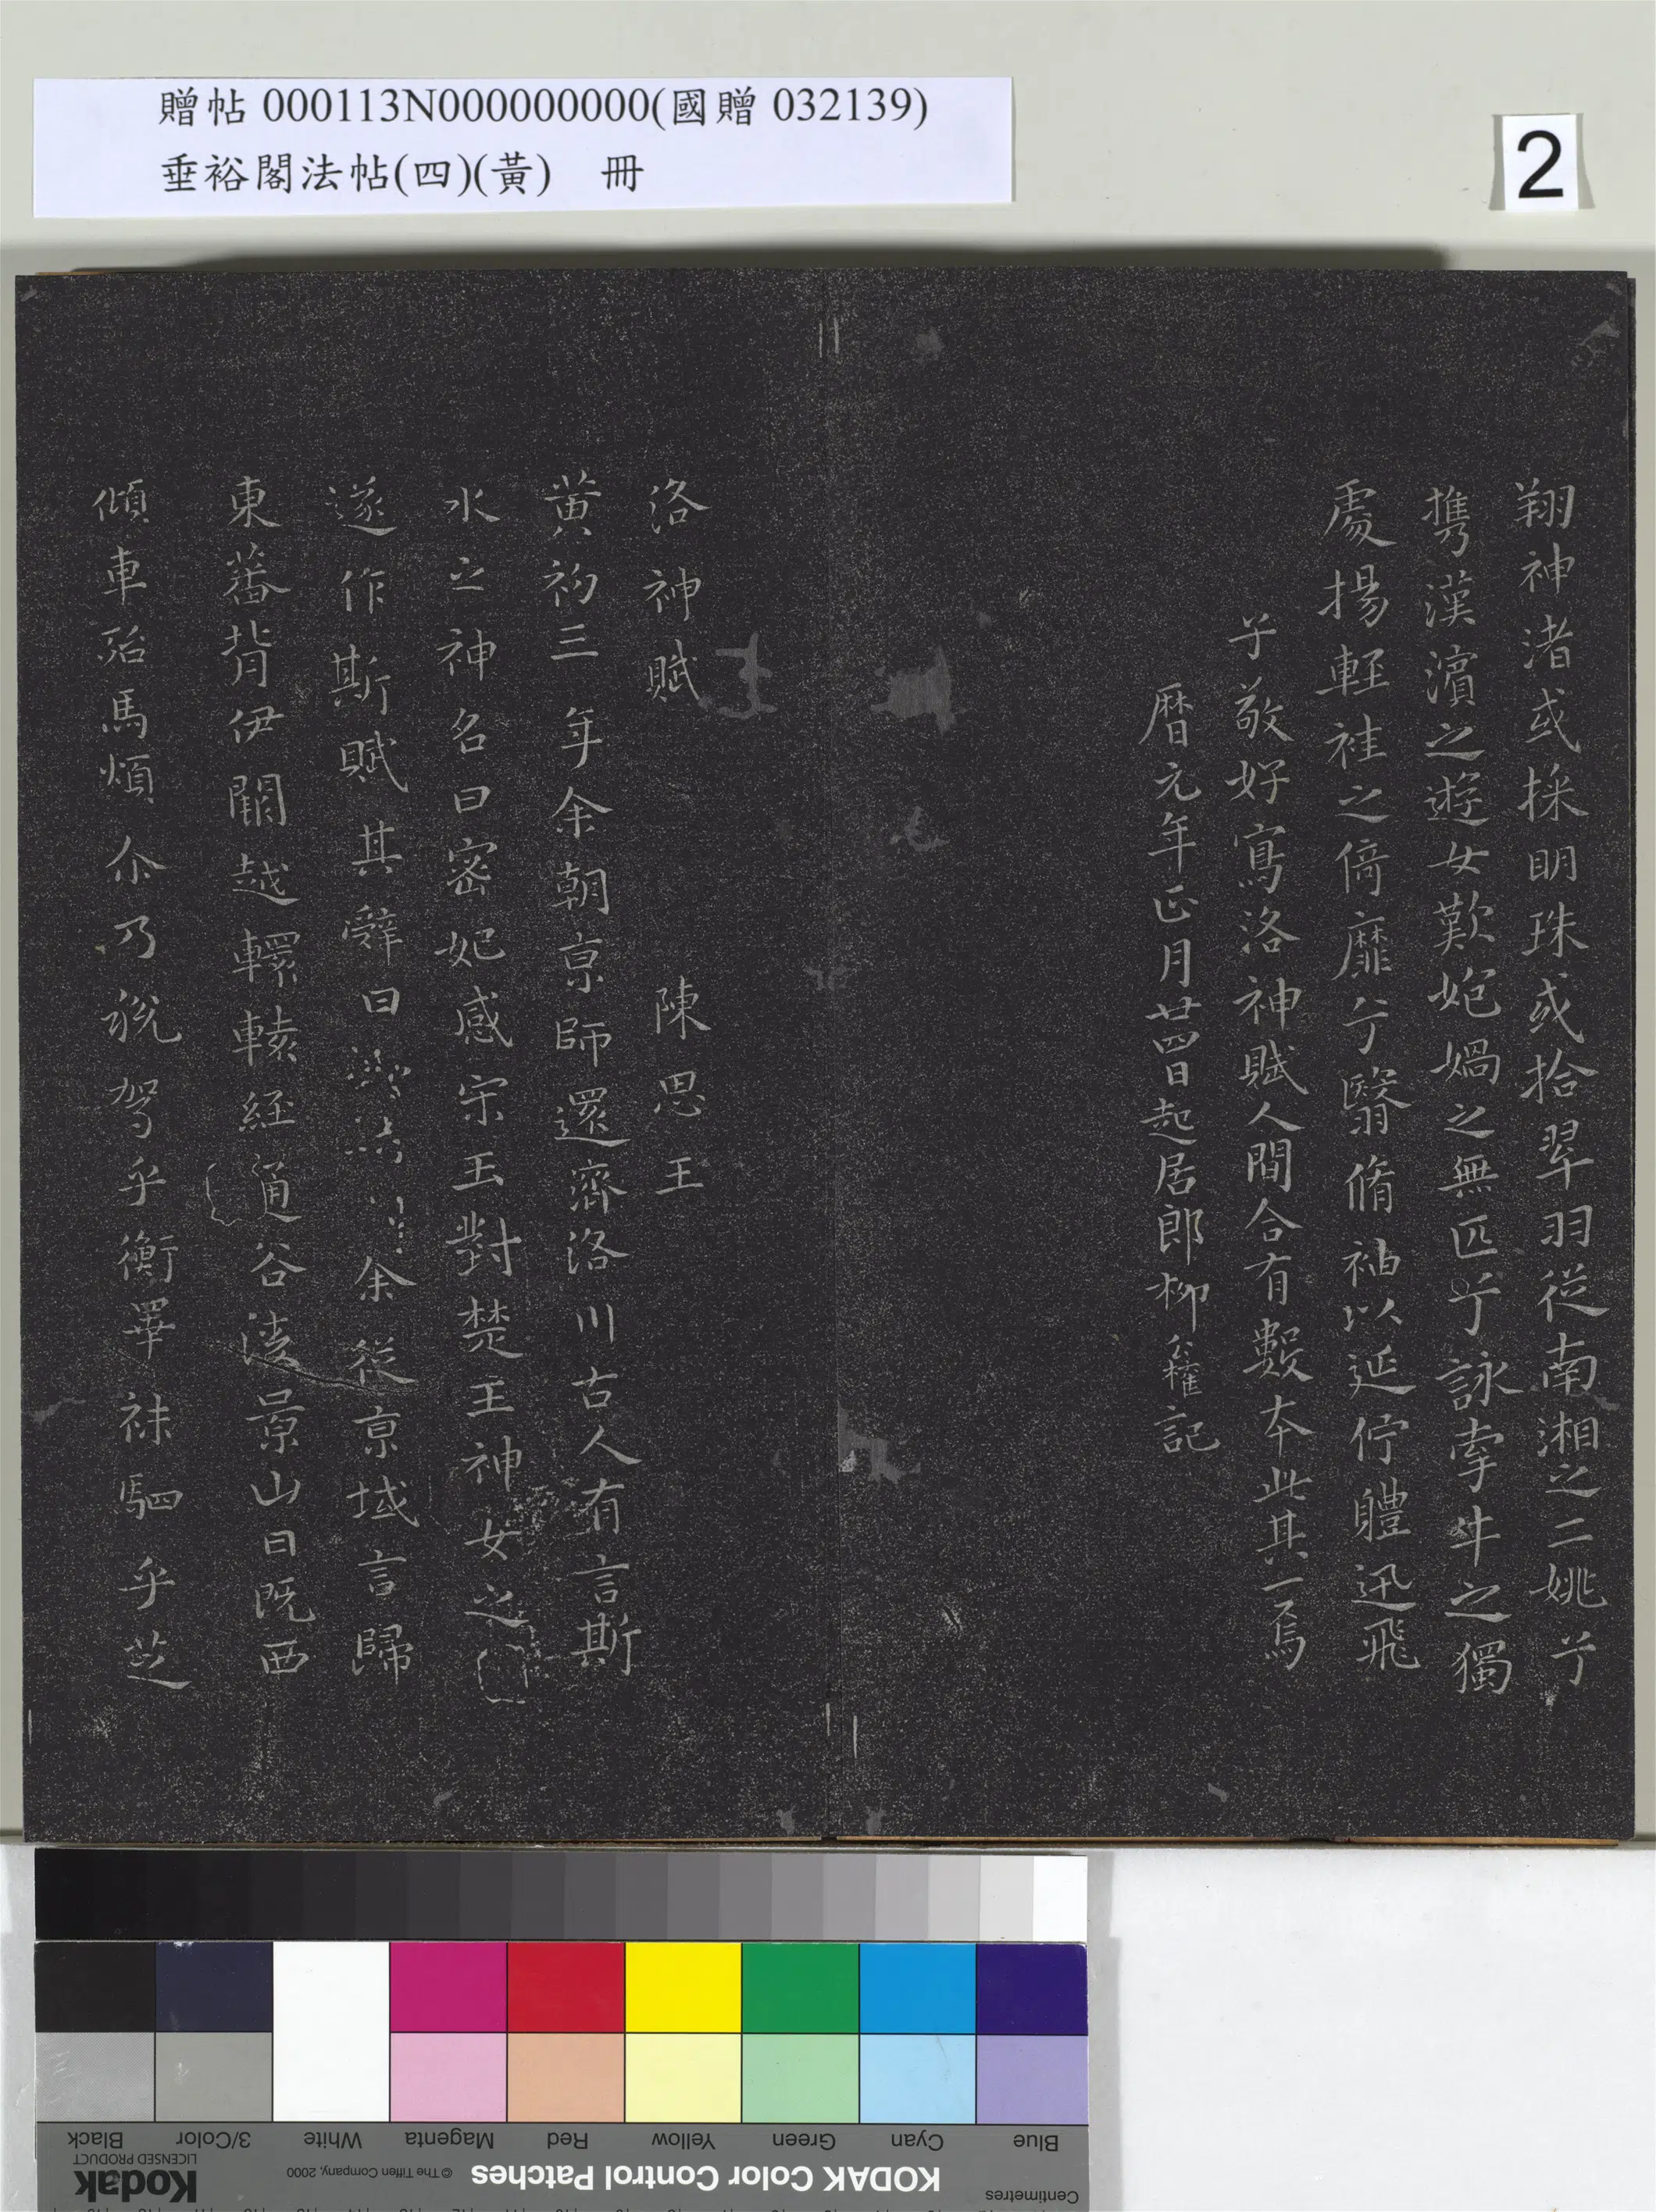 贈帖 000113N000000000(國贈 032139)
垂裕閣法帖(四)(黃) 冊
2
翔神渚或採明珠或拾翠羽從南湘之二姚兮
攜漢濱之遊女歎妑媧之無匹兮詠牽牛之獨
處揚輕袿之倚靡兮翳脩袖以延佇體迅飛
子敬好寫洛神賦人間合有數本此其一焉
曆元年正月廿四日起居郎柳公權記
洛神賦 陳思王
黃初三年余朝京師還濟洛川古人有言斯
水之神名曰密妃感宋玉對楚王神女之
遂作斯賦其辭曰余從京域言歸
東蕃背伊闕越轘轅經通谷陵景山日既西
傾車殆馬煩尒乃稅駕乎蘅睪秣駟乎芝
Black
3/Color
White
Magenta
Red
Yellow
Green
Cyan
Blue
Kodak
LICENSED PRODUCT
© The Tiffen Company, 2000
KODAK Color Control Patches
Centimetres